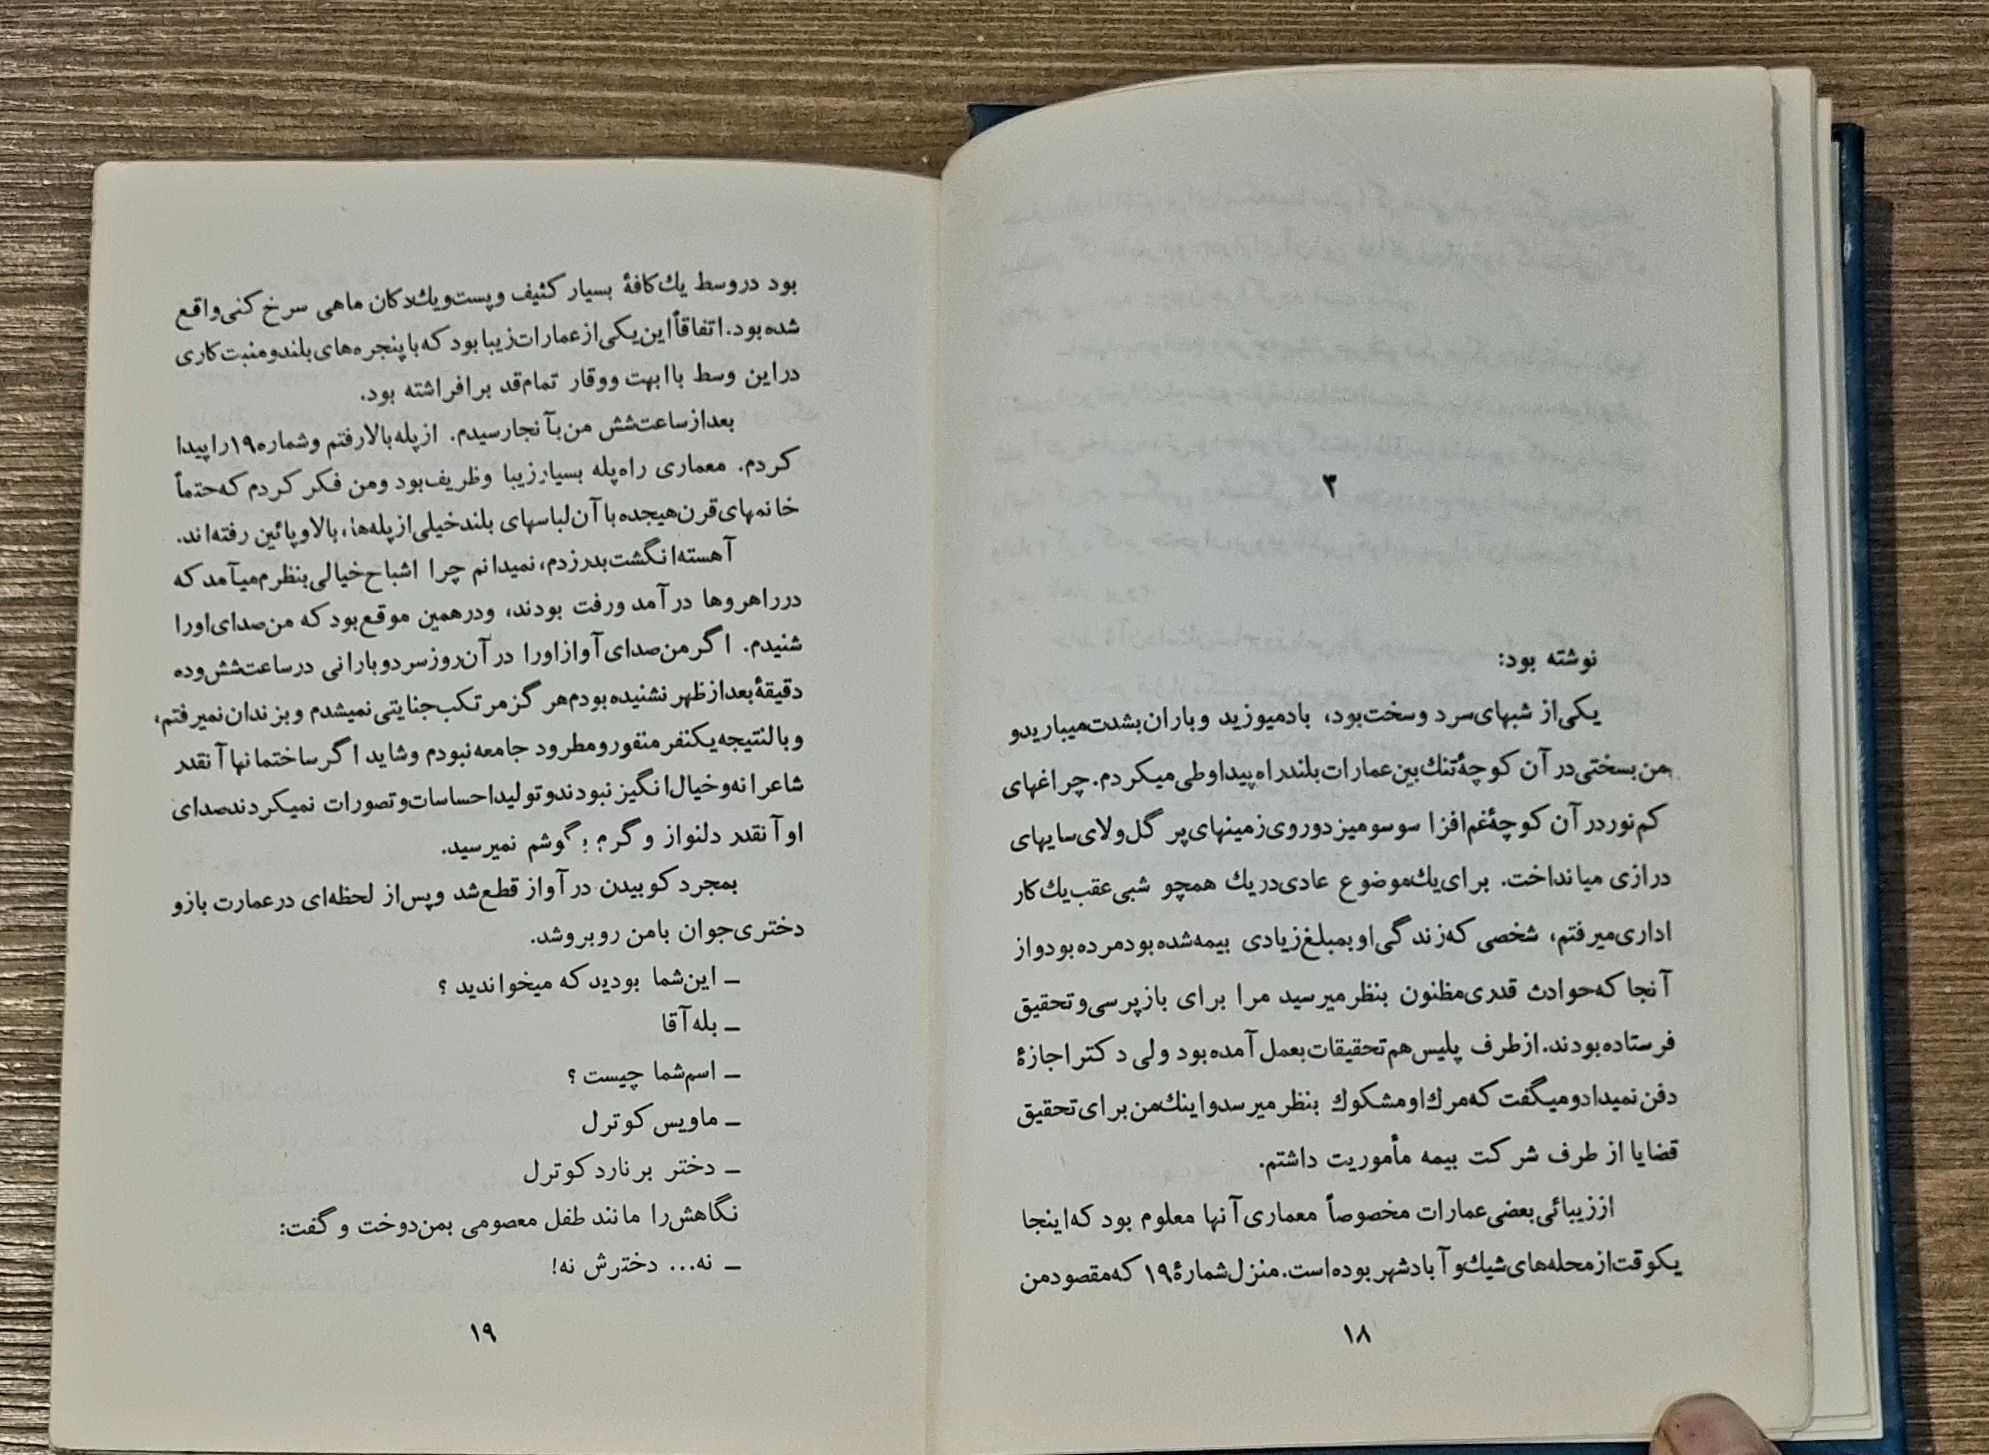 ۳
نوشته بود:
یکی از شبهای سرد و سخت بود، باد میوزید و باران بشدت میبارید و
من بسختی در آن کوچهٔ تنك بین عمارات بلند راه پیدا وطی میکردم. چراغهای
کم نور در آن کوچهٔ غم افزا سوسو میزد و روی زمینهای پر گل و لای سایهای
درازی میانداخت. برای يك موضوع عادی در يك همچو شبی عقب يك کار
اداری میرفتم، شخصی که زندگی او بمبلغ زیادی بیمه شده بود مرده بود و از
آنجا که حوادث قدری مظنون بنظر میرسید مرا برای بازپرسی و تحقیق
فرستاده بودند. از طرف پلیس هم تحقیقات بعمل آمده بود ولی دکتر اجازهٔ
دفن نمیداد و میگفت که مرك او مشکوك بنظر میرسد و اینك من برای تحقیق
قضایا از طرف شرکت بیمه مأموریت داشتم.
از زیبائی بعضی عمارات مخصوصاً معماری آنها معلوم بود که اینجا
یکوقت از محله های شيك و آباد شهر بوده است. منزل شمارهٔ ۱۹ که مقصود من
۱۸
بود در وسط يك کافهٔ بسیار کثیف و پست و يك دکان ماهی سرخ کنی واقع
شده بود. اتفاقاً این یکی از عمارات زیبا بود که با پنجره های بلند و منبت کاری
در این وسط با ابهت و وقار تمام قد برافراشته بود.
بعد از ساعت شش من بآنجا رسیدم. از پله بالا رفتم و شماره ۱۹ را پیدا
کردم. معماری راه پله بسیار زیبا و ظریف بود و من فکر کردم که حتماً
خانمهای قرن هیجده با آن لباسهای بلند خیلی از پله ها، بالا و پائین رفته اند.
آهسته انگشت بدر زدم، نمیدانم چرا اشباح خیالی بنظرم میآمد که
در راهروها در آمد و رفت بودند، و در همین موقع بود که من صدای او را
شنیدم. اگر من صدای آواز او را در آن روز سرد و بارانی در ساعت شش و ده
دقیقهٔ بعد از ظهر نشنیده بودم هرگز مرتکب جنایتی نمیشدم و بزندان نمیرفتم،
و بالنتیجه یکنفر منفور و مطرود جامعه نبودم و شاید اگر ساختمانها آنقدر
شاعرانه و خیال انگیز نبودند و تولید احساسات و تصورات نمیکردند صدای
او آنقدر دلنواز و گرم بگوشم نمیرسید.
بمجرد کوبیدن در آواز قطع شد و پس از لحظه ای در عمارت باز و
دختری جوان با من روبرو شد.
ـ این شما بودید که میخواندید ؟
ـ بله آقا
ـ اسم شما چیست ؟
ـ ماویس کوترل
ـ دختر برنارد کوترل
نگاهش را مانند طفل معصومی بمن دوخت و گفت:
ـ نه... دخترش نه!
۱۹